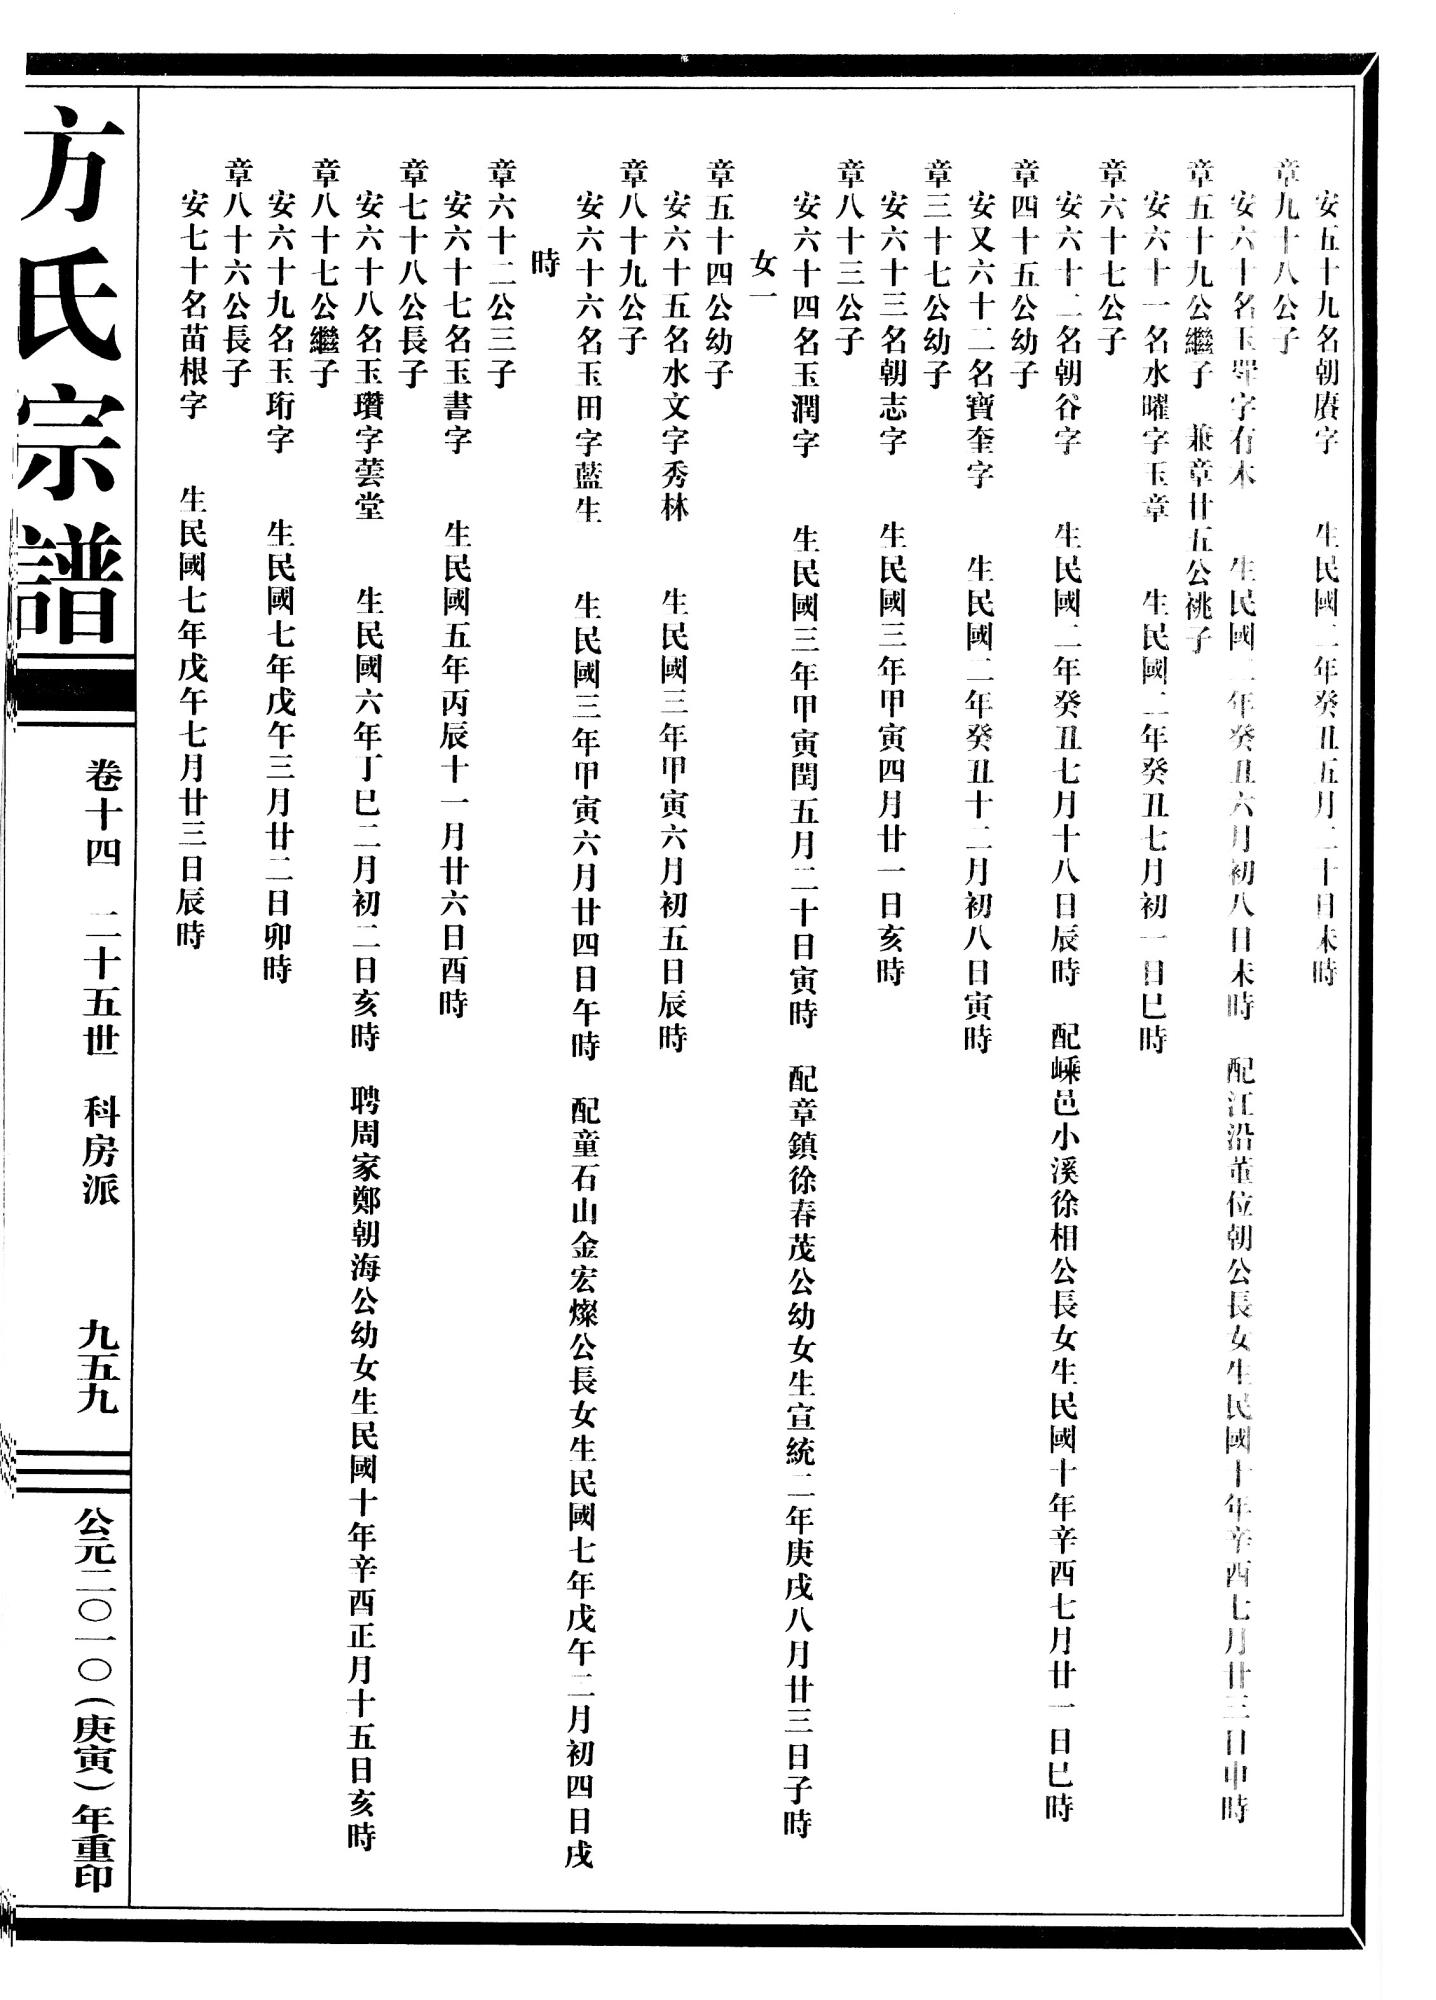 安五十九名朝賡字　生民國二年癸丑五月二十日未時
章九十八公子
安六十名玉字有木　生民國二年癸丑六月初八日未時　配江沿董位朝公長女生民國十年辛酉七月廿三日申時
章五十九公繼子　兼章廿五公祧子
安六十一名水曜字玉章　生民國二年癸丑七月初一日巳時
章六十七公子
安六十二名朝谷字　生民國二年癸丑七月十八日辰時　配嵊邑小溪徐相公長女生民國十年辛酉七月廿一日巳時
章四十五公幼子
安又六十二名寶奎字　生民國二年癸丑十二月初八日寅時
章三十七公幼子
安六十三名朝志字　生民國三年甲寅四月廿一日亥時
章八十三公子
安六十四名玉潤字　生民國三年甲寅閏五月二十日寅時　配章鎮徐春茂公幼女生宣統二年庚戌八月廿三日子時
女一
章五十四公幼子
安六十五名水文字秀林　生民國三年甲寅六月初五日辰時
章八十九公子
安六十六名玉田字藍生　生民國三年甲寅六月廿四日午時　配童石山金宏燦公長女生民國七年戊午二月初四日戌
時
章六十二公三子
安六十七名玉書字　生民國五年丙辰十一月廿六日酉時
章七十八公長子
安六十八名玉瓚字蕓堂　生民國六年丁巳二月初二日亥時　聘周家鄭朝海公幼女生民國十年辛酉正月十五日亥時
章八十七公繼子
安六十九名玉珩字　生民國七年戊午三月廿二日卯時
章八十六公長子
安七十名苗根字　生民國七年戊午七月廿三日辰時
方氏宗譜
卷十四　二十五世　科房派
九五九
公元二〇一〇（庚寅）年重印